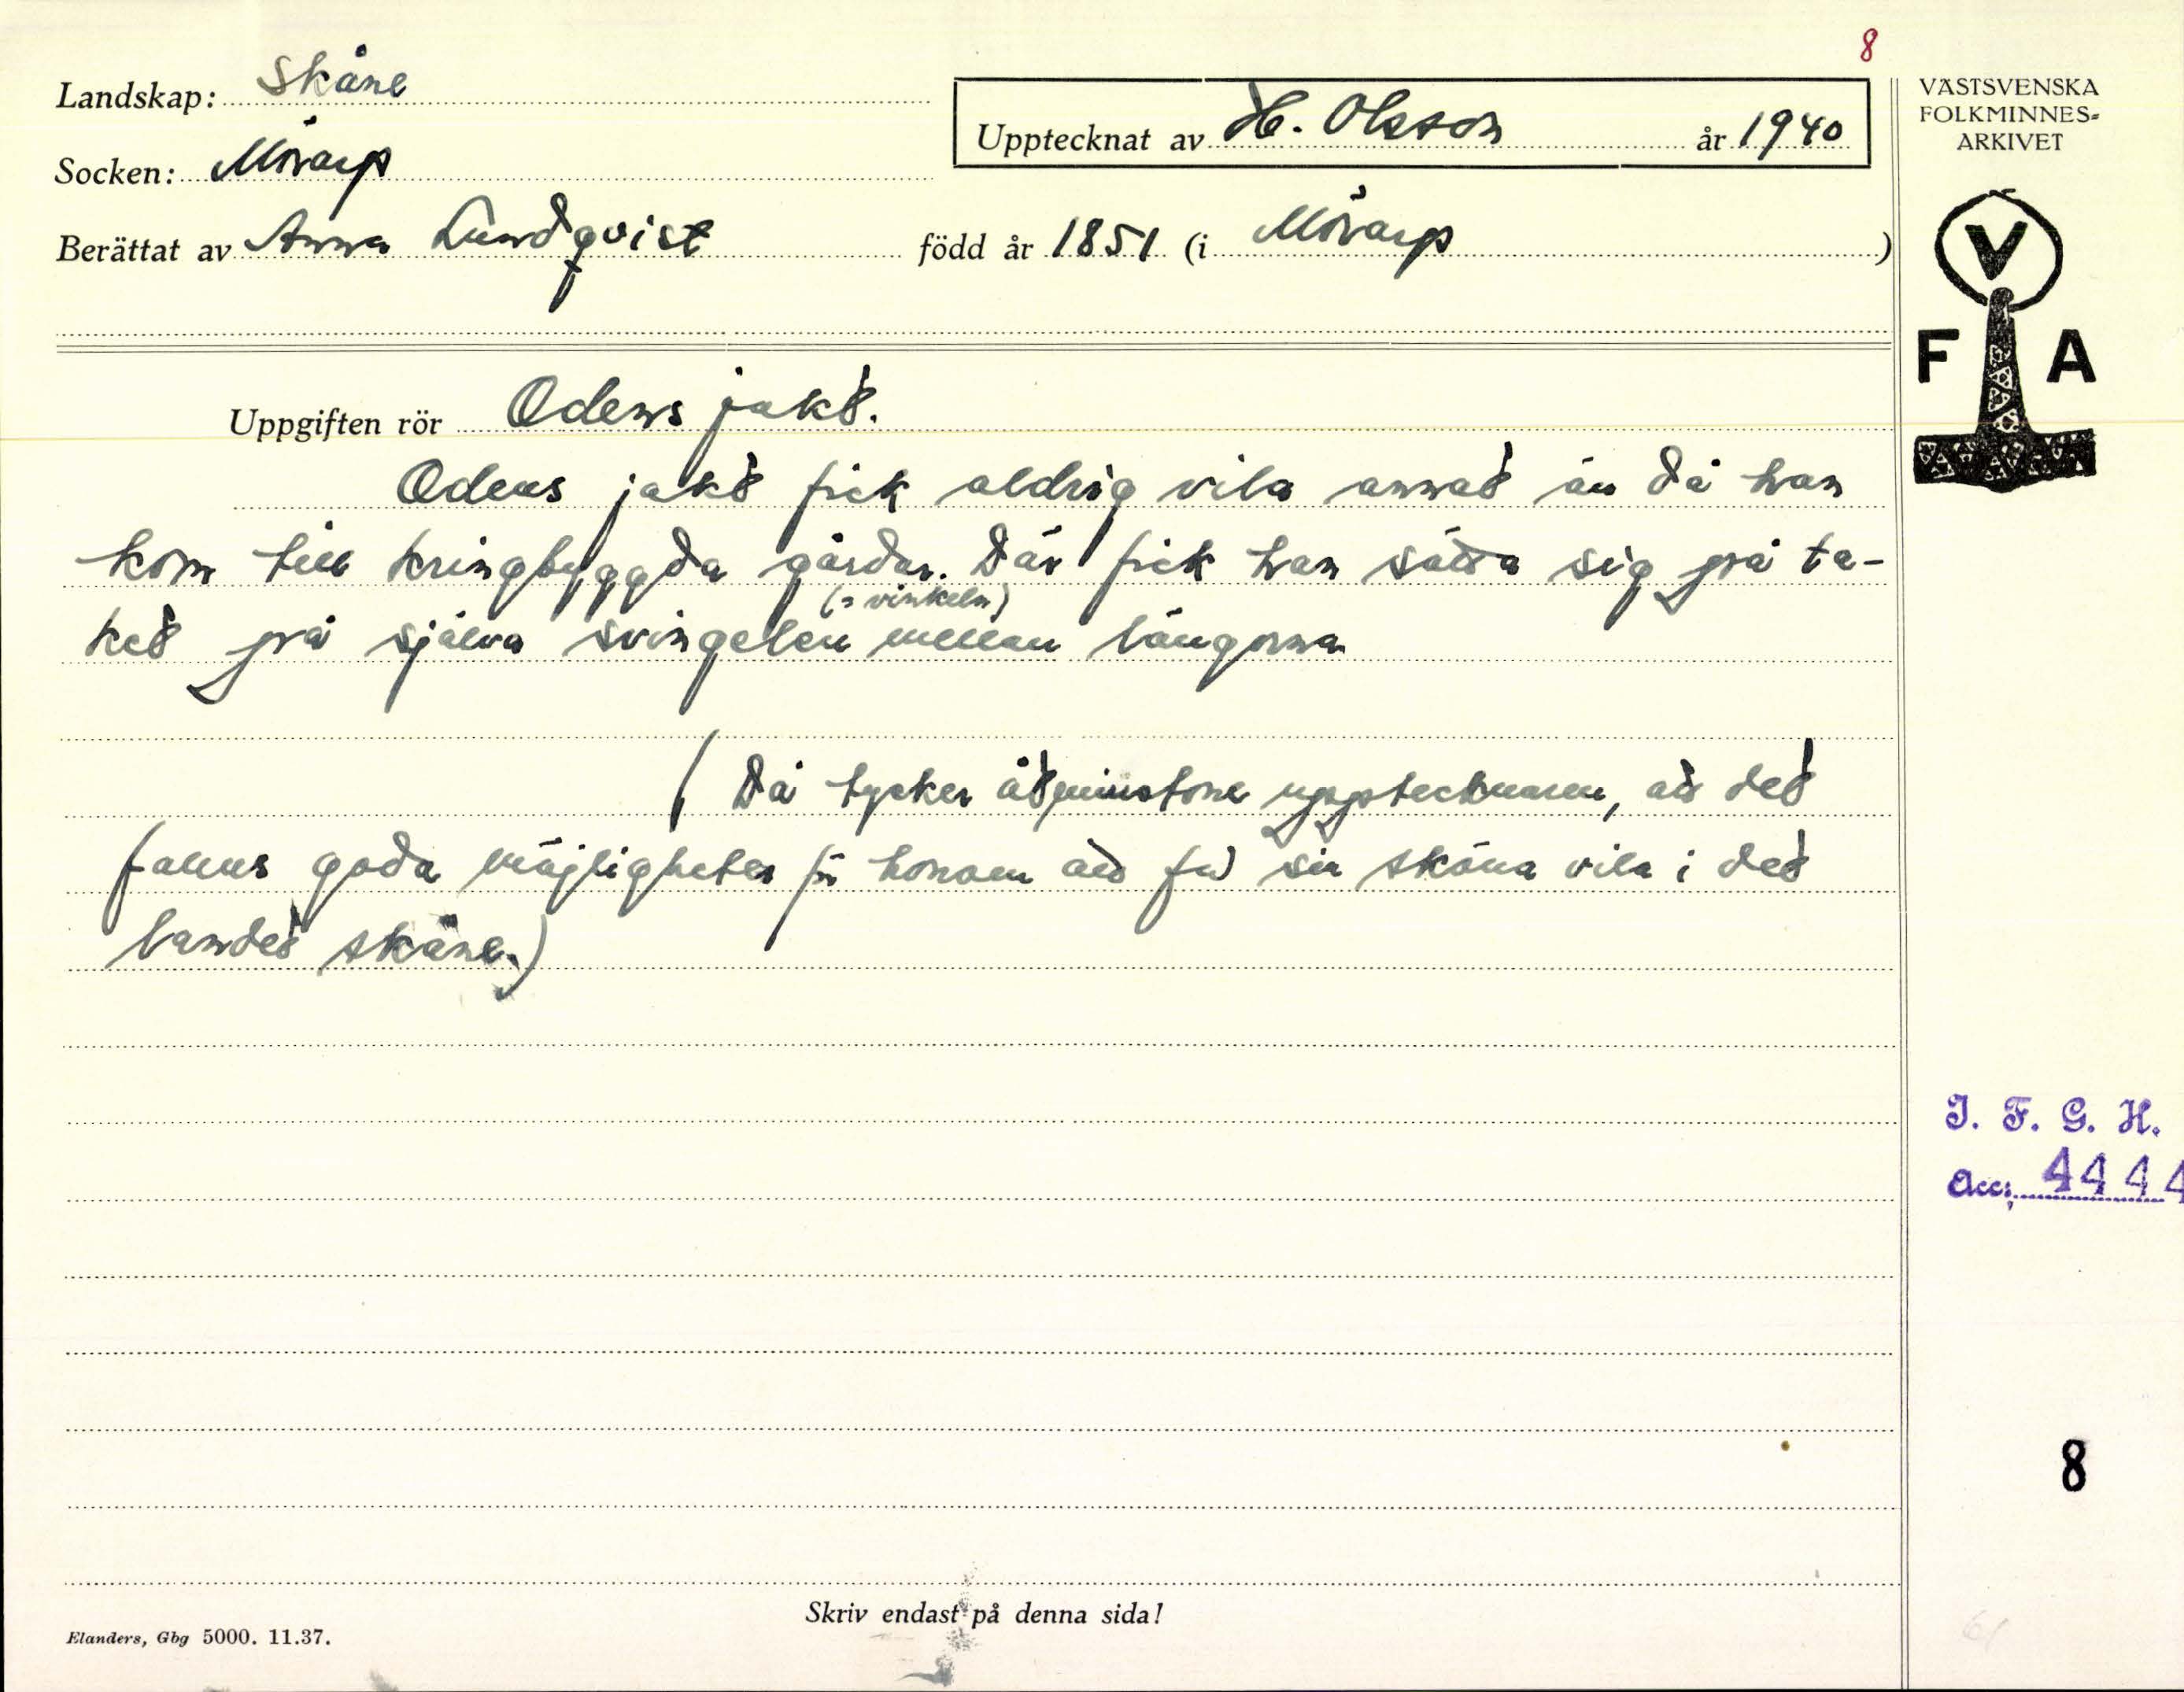 8
Landskap: Skåne
Upptecknat av H. Olsson år 1940
VÄSTSVENSKA
FOLKMINNES=
ARKIVET
Socken: Mörarp
Berättat av Anna Lundqvist född år 1851 (i Mörarp)
V
F A
Uppgiften rör Odens jakt.
Odens jakt fick aldrig vila annat än då han
kom till kringbyggda gårdar. Där fick han sätta sig på ta-
(= vinkeln)
ket på själva svingelen mellan längorna
(Då tycker åtminstone upptecknaren, att det
fanns goda möjligheter för honom att få sin sköna vila i det
landet Skåne.)
I. F. G. H.
Acc. 4444
8
Skriv endast på denna sida!
Elanders, Gbg 5000. 11.37.
61